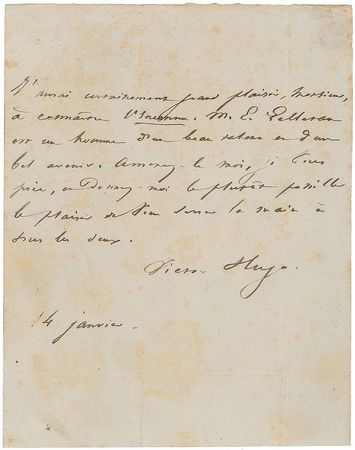 J'aurai certainement grand plaisir, Monsieur,
à connaître l'Inconnu. M. E. Pelletan
est un homme d'un beau talent et d'un
bel avenir. Amenez-le moi, je vous
prie, et donnez-moi le plutôt possible
le plaisir de vous serrer la main à
tous les deux.
Victor Hugo.
14 janvier.